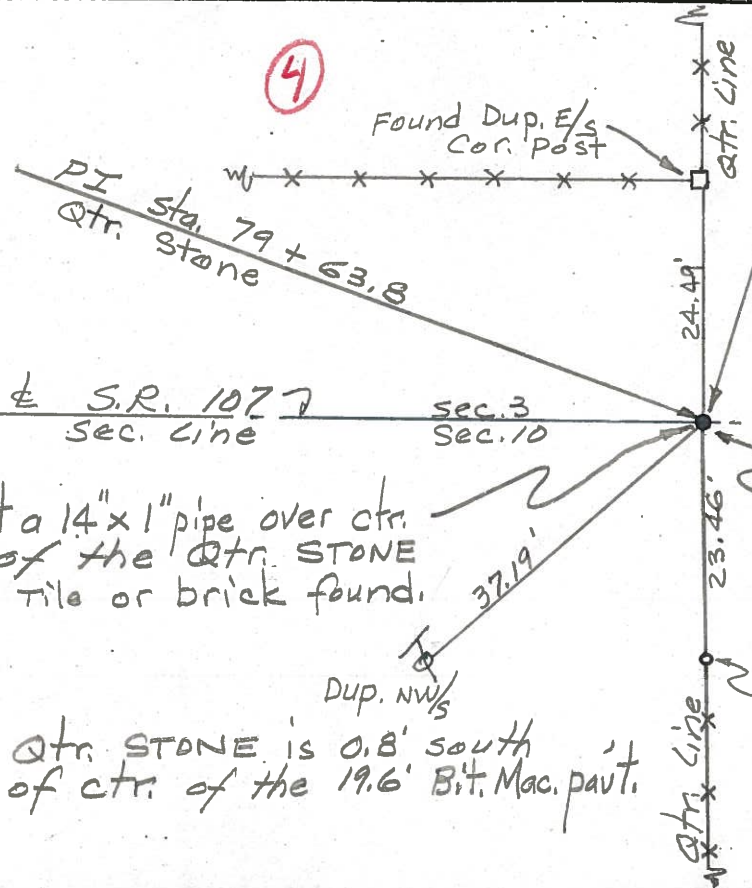 4
Found Dup. E/s
Cor. post
Qtr. Line
PI Sta. 79 + 63.8
Qtr. Stone
24.49'
℄ S.R. 107
Sec. Line
Sec. 3
Sec. 10
a 14" x 1" pipe over ctr.
of the Qtr. STONE
Tile or brick found.
37.19'
23.46'
Dup. NW/s
Qtr. STONE is 0.8' south
of ctr. of the 19.6' Bit. Mac. pavt.
Qtr. Line